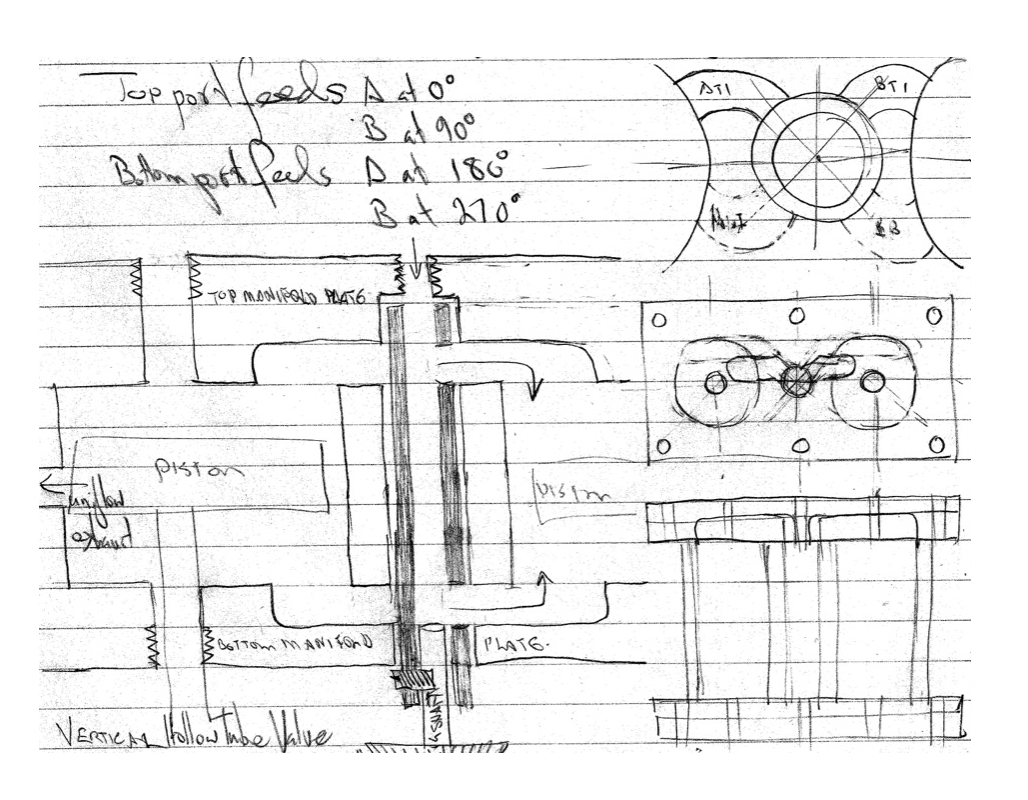 Top port feeds A at 0°
B at 90°
Bottom port feels A at 180°
B at 270°
AT1
BT1
TOP MANIFOLD PLATE.
Piston
Piston
uniflow
exhaust
BOTTOM MANIFOLD PLATE.
VERTICAL Hollow Tube Valve